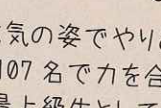 気の姿でやり
107名で力を合
最上級生として